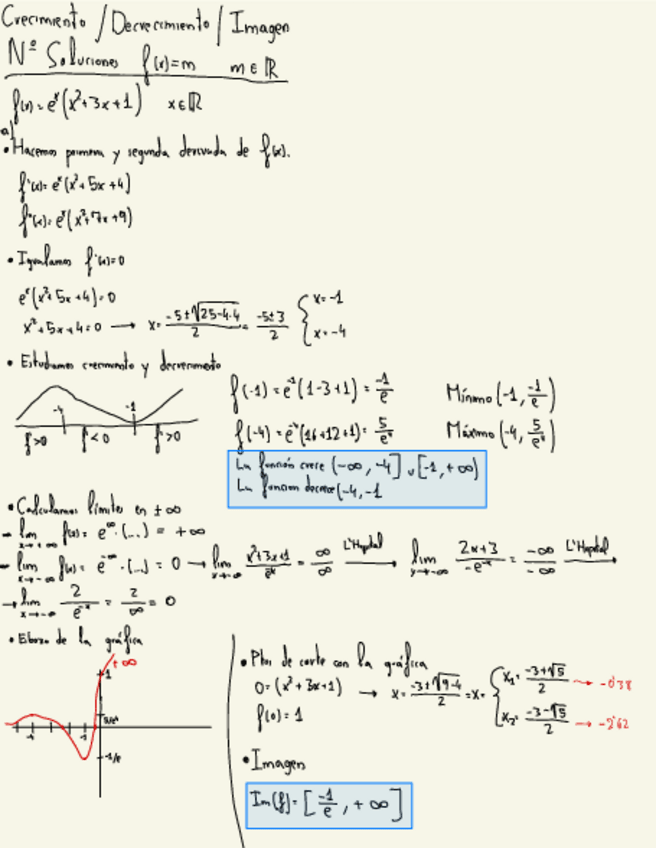 Crecimiento / Decrecimiento / Imagen
Nº Soluciones f(x)=m m∈ℝ
f(x)=eˣ(x²+3x+1) x∈ℝ
a)
• Hacemos primera y segunda derivada de f(x).
f'(x)=eˣ(x²+5x+4)
f''(x)=eˣ(x²+7x+9)
• Igualamos f'(x)=0
eˣ(x²+5x+4)=0
x²+5x+4=0 → x= (-5±√(25-4·4))/2 = (-5±3)/2 { x=-1 x=-4
• Estudiamos crecimiento y decrecimiento
-4 -1
f'>0 f'<0 f'>0
f(-1)=e⁻¹(1-3+1)= -1/e Mínimo (-1, -1/e)
f(-4)=e⁻⁴(16+12+1)= 5/e⁴ Máximo (-4, 5/e⁴)
La función crece (-∞, -4] ∪ [-1, +∞)
La función decrece (-4, -1
• Calculamos límites en ±∞
- lim x→+∞ f(x)= e^∞ · (...) = +∞
- lim x→-∞ f(x)= e^-∞ · (...) = 0 → lim x→-∞ (x²+3x+1)/e⁻ˣ = ∞/∞ L'Hopital → lim x→-∞ (2x+3)/(-e⁻ˣ) = -∞/-∞ L'Hopital →
→ lim x→-∞ 2/e⁻ˣ = 2/∞ = 0
• Esbozo de la gráfica
+∞
1
5/e⁴
-4 -1
-1/e
• Ptos de corte con la gráfica
0=(x²+3x+1) → x= (-3±√(9-4))/2 =x= { x₁= (-3+√5)/2 → -0'38
f(0)=1 x₂= (-3-√5)/2 → -2'62
• Imagen
Im(f)= [ -1/e , +∞ ]